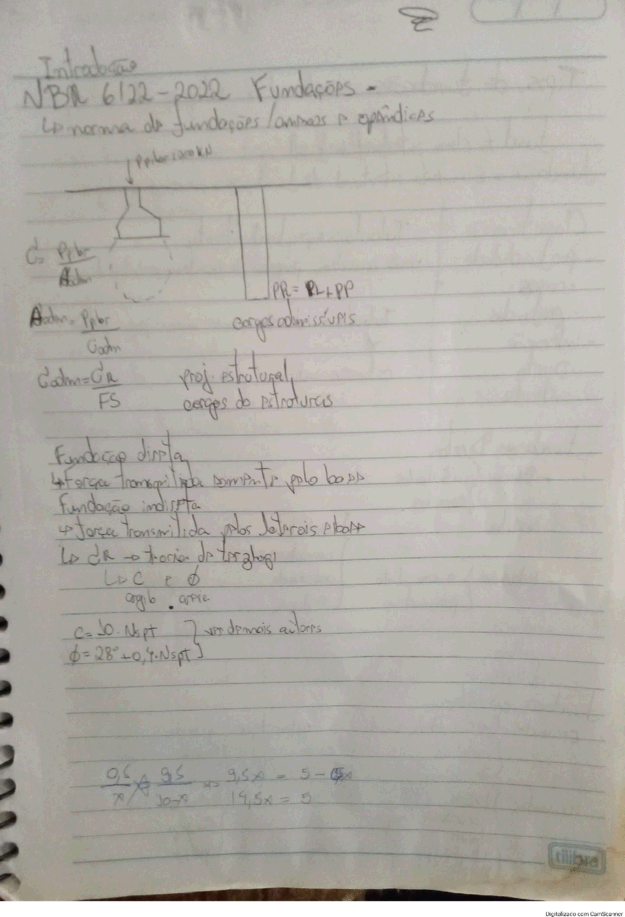 Introdução
NBR 6122-2022 Fundações
↳ norma de fundações / anexos e apêndices
Ppilar
σ = Ppilar / Aadm
PR = PL + PP
Aadm = Ppilar / σadm
cargas admissíveis
σadm = σR / FS
proj. estrutural
cargas da estruturas
Fundação direta
↳ Força transmitida somente pela base
Fundação indireta
↳ força transmitida pelas laterais e base
↳ σR → teoria de terzhagi
↳ C e φ
argila . areia
C = 10. Nspt } ver demais autores
φ = 28° + 0,4. Nspt }
0,5 / x 9,5 / 10-x ⇒ 9,5x = 5 - 5x
14,5x = 5
tilibra
Digitalizado com CamScanner